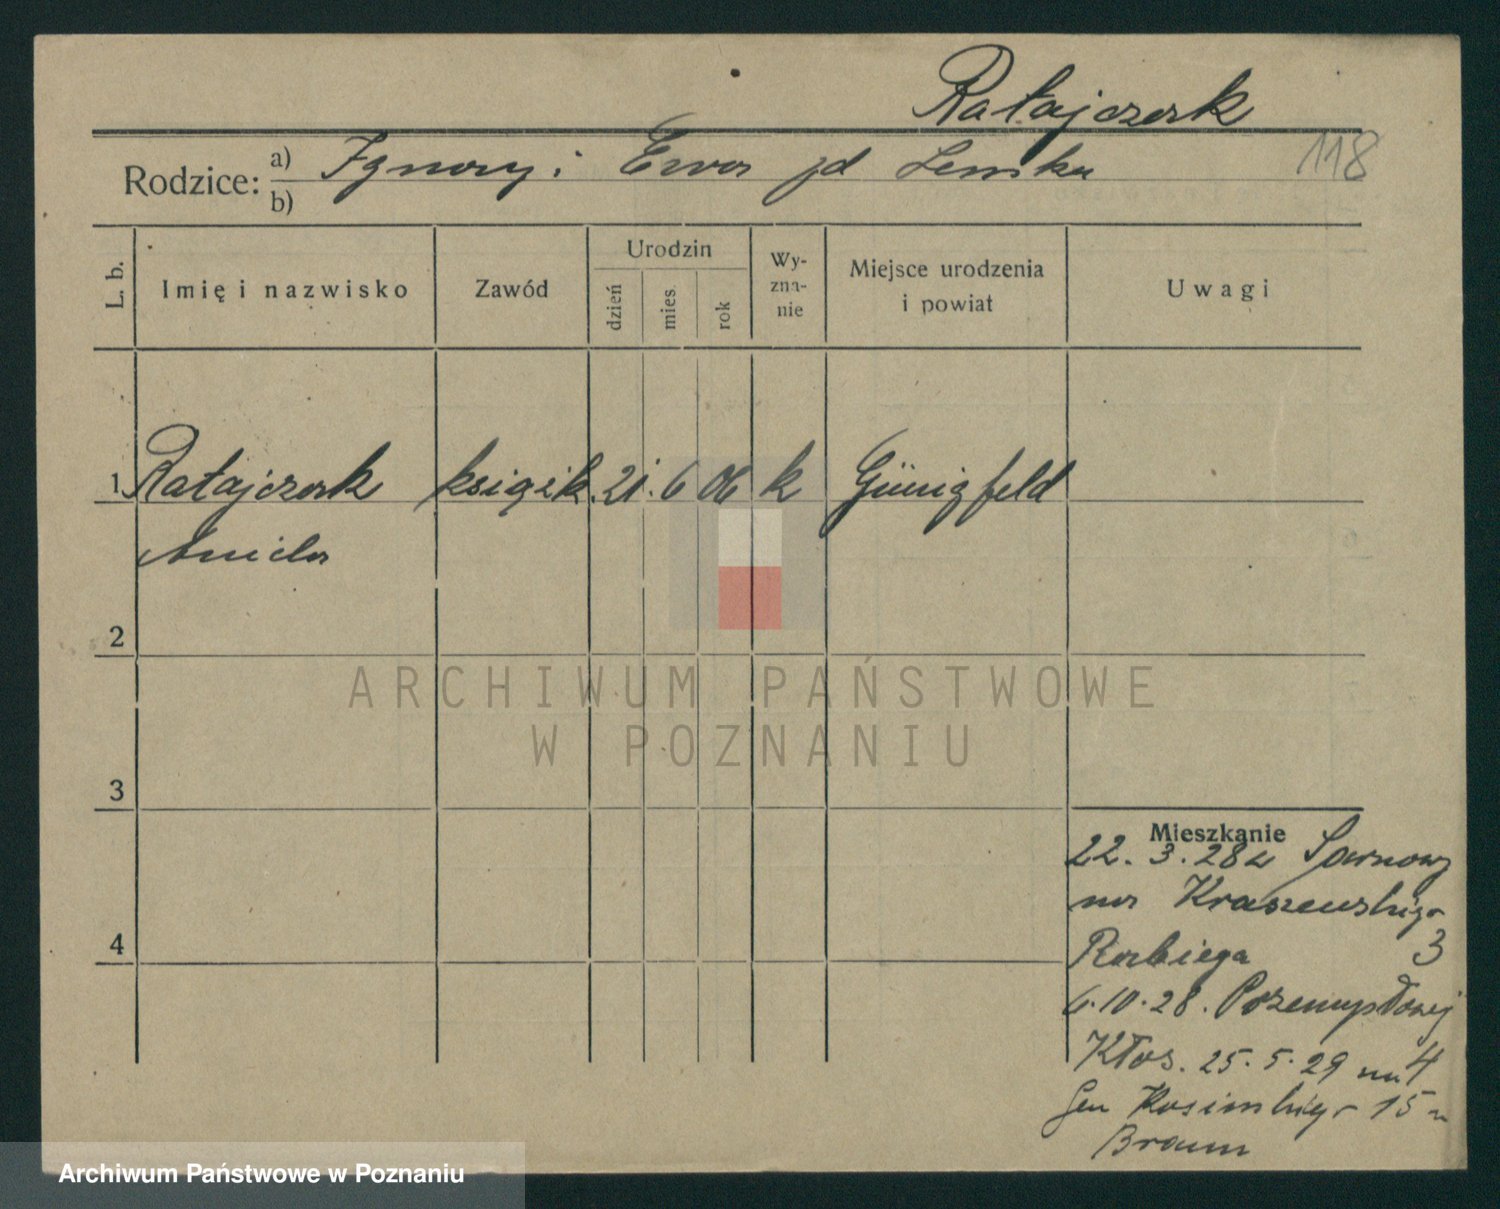 Ratajczak
118
Rodzice: a) Ignacy i Ewa zd Lemka
b)
L. b. Imię i nazwisko Zawód Urodzin dzień mies. rok Wyznanie Miejsce urodzenia i powiat Uwagi
1 Ratajczak księgk. 21. 6 06 k Günigfeld
Aniela
2
3
4
Mieszkanie
22. 3. 28 z Sarnowy
na Kraszewskiego
Rozbiega 3
6.10.28. Przemysłowej
Kłos. 25.5.29 na 4
Gen Kosinskiego 15 u
Braun
ARCHIWUM PAŃSTWOWE
W POZNANIU
Archiwum Państwowe w Poznaniu